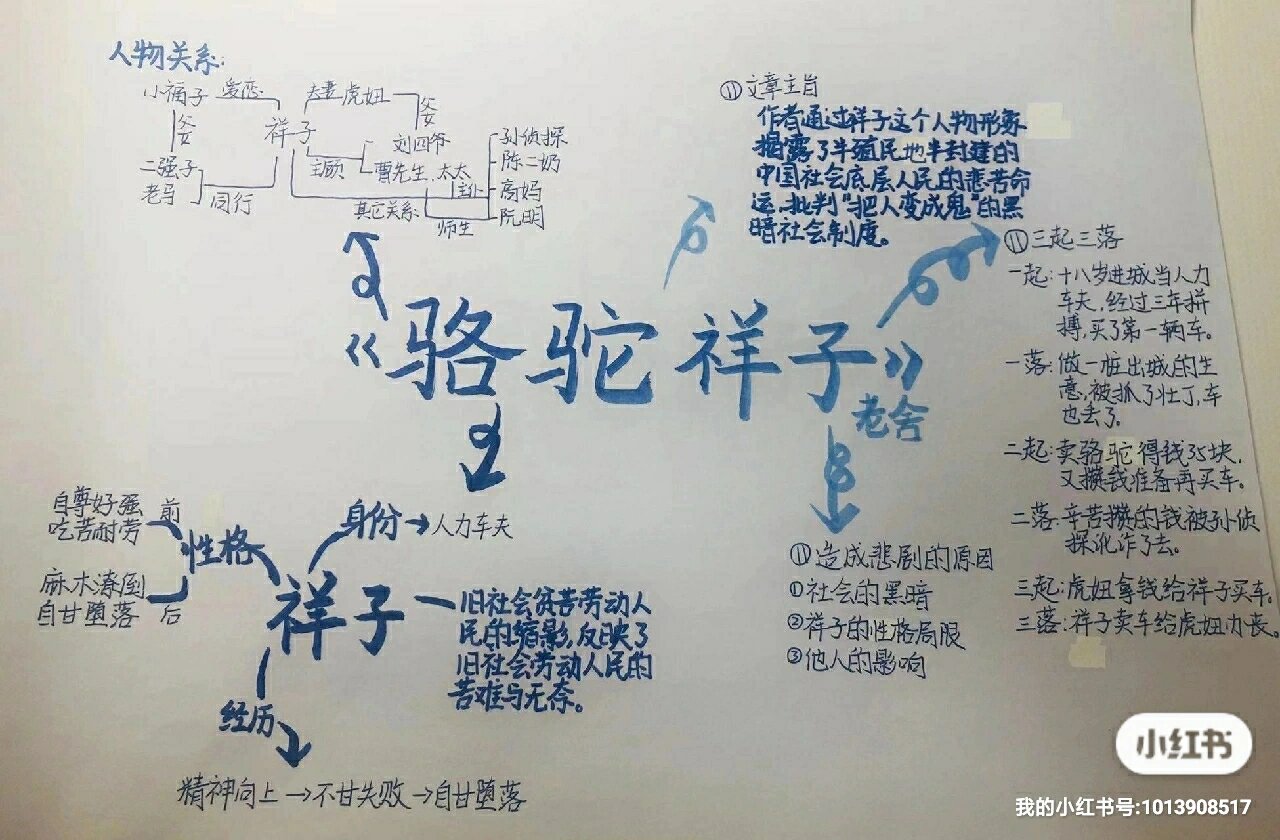 人物关系:
小福子 爱恋 夫妻 虎妞
父女 祥子 父女
刘四爷
二强子
老马 同行
主顾 曹先生、太太
孙侦探
陈二奶
高妈
阮明
主仆
其它关系
师生
⑪文章主旨
作者通过祥子这个人物形象
揭露了半殖民地半封建的
中国社会底层人民的悲苦命
运,批判"把人变成鬼"的黑
暗社会制度。
《骆驼祥子》
老舍
⑪三起三落
一起:十八岁进城当人力
车夫,经过三年拼
搏,买了第一辆车。
一落:做一桩出城的生
意,被抓了壮丁,车
也丢了。
二起:卖骆驼得钱35块,
又攒钱准备再买车。
二落:辛苦攒的钱被孙侦
探讹诈了去。
三起:虎妞拿钱给祥子买车。
三落:祥子卖车给虎妞办丧。
自尊好强
吃苦耐劳 前
性格
麻木潦倒
自甘堕落 后
身份→人力车夫
祥子
旧社会贫苦劳动人
民的缩影,反映了
旧社会劳动人民的
苦难与无奈。
经历
精神向上→不甘失败→自甘堕落
⑪造成悲剧的原因
①社会的黑暗
②祥子的性格局限
③他人的影响
小红书
我的小红书号:1013908517